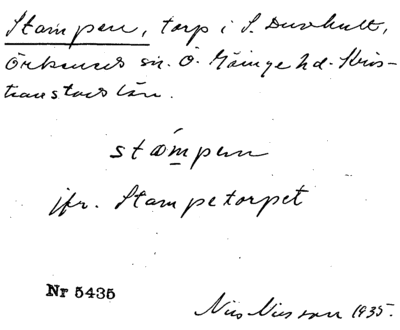 Stampen, torp i S. Duvhult,
Örkeneds sn. Ö. Göinge hd. Kris-
tianstads län.
stámpen
jfr. Stampetorpet
Nr 5435
Nils Nilsson 1935.